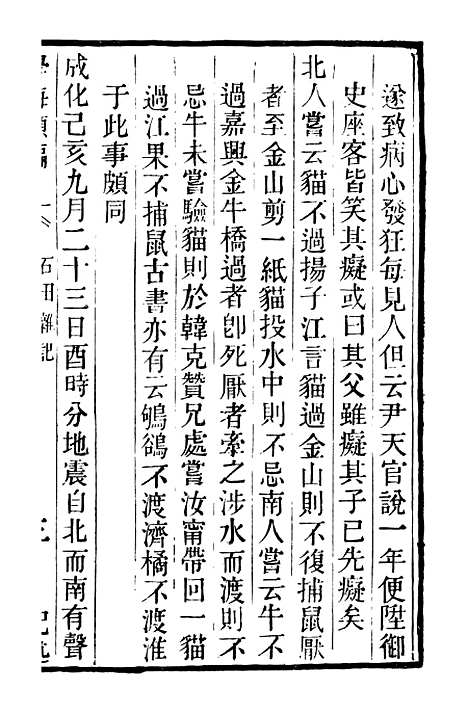 遂致病心發狂每見人但云尹天官說一年便陞御
史座客皆笑其癡或曰其父雖癡其子已先癡矣
北人嘗云貓不過揚子江言貓過金山則不復捕鼠厭
者至金山剪一紙貓投水中則不忌南人嘗云牛不
過嘉興金牛橋過者卽死厭者牽之涉水而渡則不
忌牛未嘗驗貓則於韓克贊兄處嘗汝甯帶回一貓
過江果不捕鼠古書亦有云鴝鵒不渡濟橘不渡淮
于此事頗同
成化己亥九月二十三日酉時分地震自北而南有聲
石田雜記
三